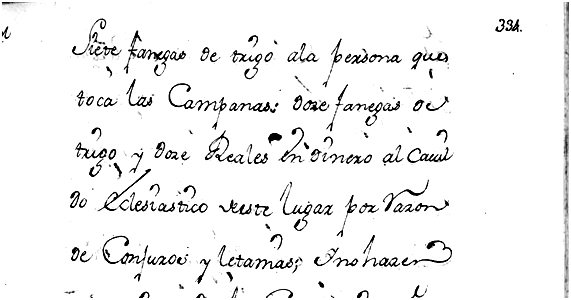 334.
Siete fanegas de trigo ala persona que
toca las Campanas: doze fanegas de
trigo y doze Reales en dinero al Cavil
do Eclesiastico deeste lugar por Razon
de Conjuros y letanias; Ino hazen